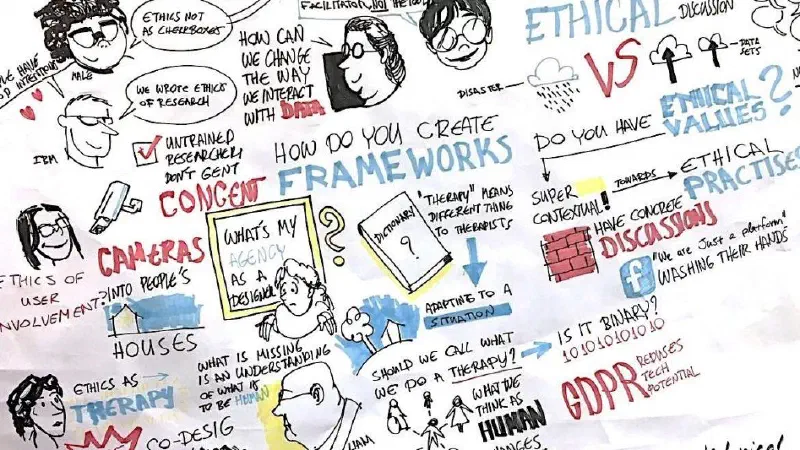 ETHICS NOT
AS CHECKBOXES
MALE
WE WROTE ETHICS
OF RESEARCH
IBM
UNTRAINED
RESEARCHERS
DON'T GENT
CONCENT
CAMERAS
INTO PEOPLE'S
HOUSES
ETHICS OF
USER
INVOLVEMENT?
ETHICS AS
THERAPY
CO-DESIG
HOW CAN
WE CHANGE
THE WAY
WE INTERACT
WITH DATA
FACILITATOR, NOT THE
HOW DO YOU CREATE
FRAMEWORKS
WHAT'S MY
AGENCY
AS A
DESIGNER
?
DICTIONARY
?
"THERAPY" MEANS
DIFFERENT THING
TO THERAPISTS
ADAPTING TO A
SITUATION
WHAT IS MISSING
IS AN UNDERSTANDING
OF WHAT IS
TO BE HUMAN
SHOULD WE CALL WHAT
WE DO A THERAPY?
WHAT WE
THINK AS
HUMAN
ETHICAL
DISCUSSION
DISASTER
VS
DATA
SETS
DO YOU HAVE
ETHICAL
VALUES?
SUPER
CONTEXTUAL!
TOWARDS
ETHICAL
PRACTISES
HAVE CONCRETE
DISCUSSIONS
f
"We are just a platform"
WASHING THEIR HANDS
IS IT BINARY?
101010101010
GDPR
REDUSES
TECH
POTENTIAL